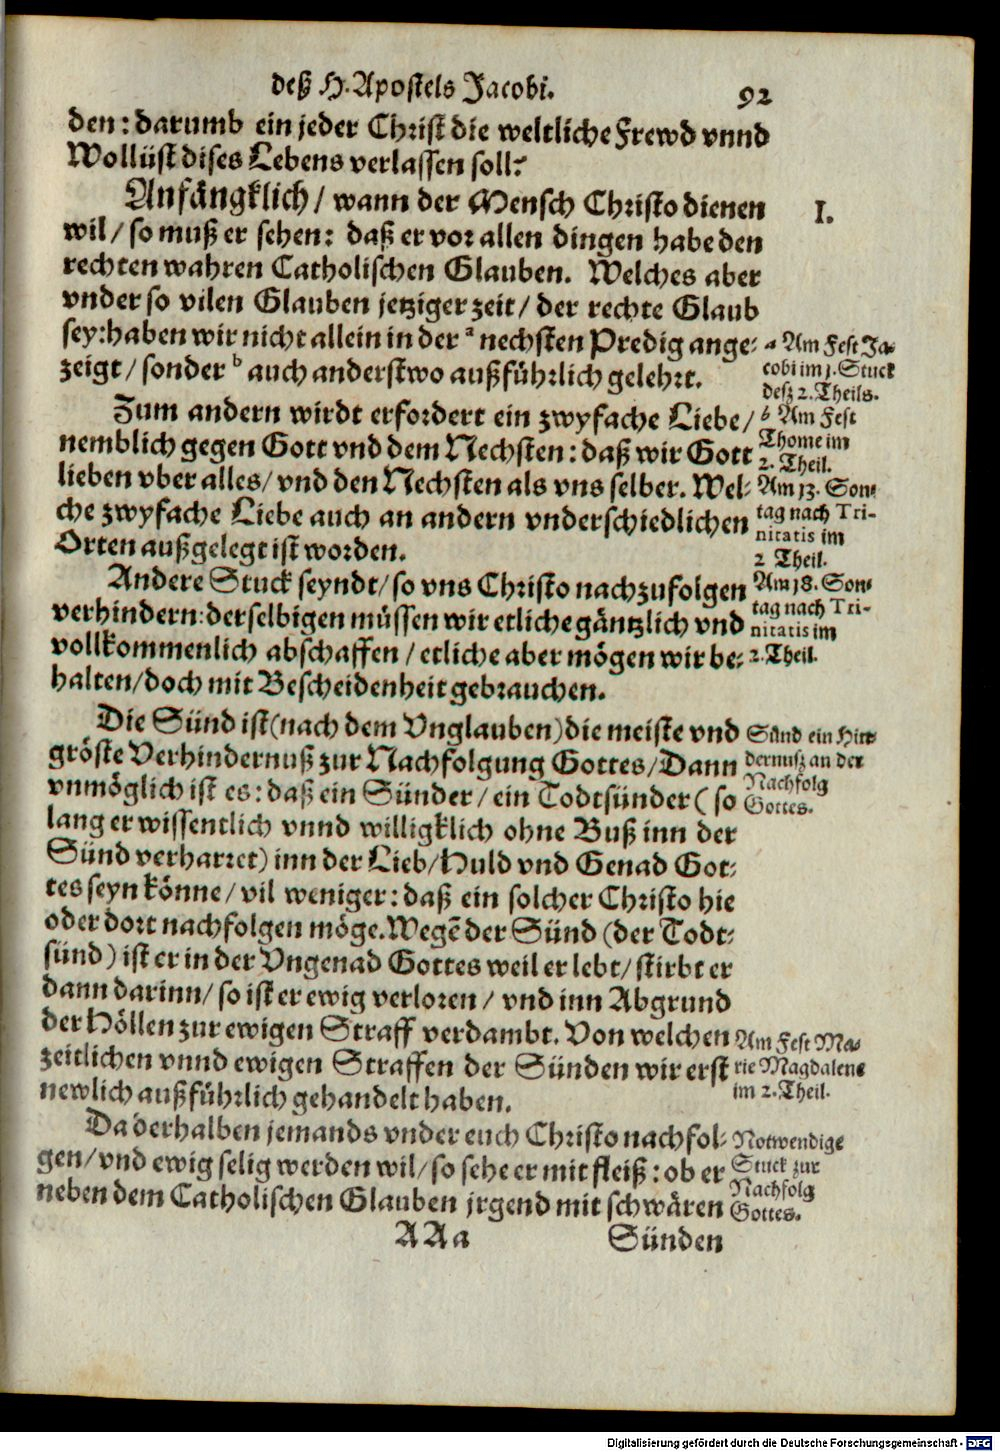 deß H. Apostels Jacobi. 92
den: darumb ein jeder Christ die weltliche Frewd vnnd
Wollüst dises Lebens verlassen soll.
Anfängklich / wann der Mensch Christo dienen
I.
wil / so muß er sehen: daß er vor allen dingen habe den
rechten wahren Catholischen Glauben. Welches aber
vnder so vilen Glauben jetziger zeit / der rechte Glaub
sey: haben wir nicht allein in der a nechsten Predig ange-
zeigt / sonder b auch anderstwo außführlich gelehrt.
a Am Fest Ja-
cobi im 1. Stuck
deß 2. Theils.
b Am Fest
Thome im
2. Theil.
Zum andern wirdt erfordert ein zwyfache Liebe /
nemblich gegen Gott vnd dem Nechsten: daß wir Gott
lieben vber alles / vnd den Nechsten als vns selber. Wel-
che zwyfache Liebe auch an andern vnderschiedlichen
Orten außgelegt ist worden.
Am 13. Son-
tag nach Tri-
nitatis im
2 Theil.
Andere Stuck seyndt / so vns Christo nachzufolgen
verhindern: derselbigen müssen wir etliche gäntzlich vnd
vollkommenlich abschaffen / etliche aber mögen wir be-
halten / doch mit Bescheidenheit gebrauchen.
Am 18. Son-
tag nach Tri-
nitatis im
2. Theil.
Die Sünd ist (nach dem Vnglauben) die meiste vnd
gröste Verhindernuß zur Nachfolgung Gottes / Dann
vnmöglich ist es: daß ein Sünder / ein Todtsünder (so
lang er wissentlich vnnd willigklich ohne Buß inn der
Sünd verharret) inn der Lieb / Huld vnd Genad Got-
tes seyn könne / vil weniger: daß ein solcher Christo hie
oder dort nachfolgen möge. Wegē der Sünd (der Todt-
sünd) ist er in der Vngenad Gottes weil er lebt / stirbt er
dann darinn / so ist er ewig verloren / vnd inn Abgrund
der Höllen zur ewigen Straff verdambt. Von welchen
zeitlichen vnnd ewigen Straffen der Sünden wir erst
newlich außführlich gehandelt haben.
Sünd ein Hin-
dernuß an der
Nachfolg
Gottes.
Am Fest Ma-
rie Magdalene
im 2. Theil.
Da derhalben jemands vnder euch Christo nachfol-
gen / vnd ewig selig werden wil / so sehe er mit fleiß: ob er
neben dem Catholischen Glauben jrgend mit schwären
Notwendige
Stuck zur
Nachfolg
Gottes.
AAa Sünden
Digitalisierung gefördert durch die Deutsche Forschungsgemeinschaft - DFG